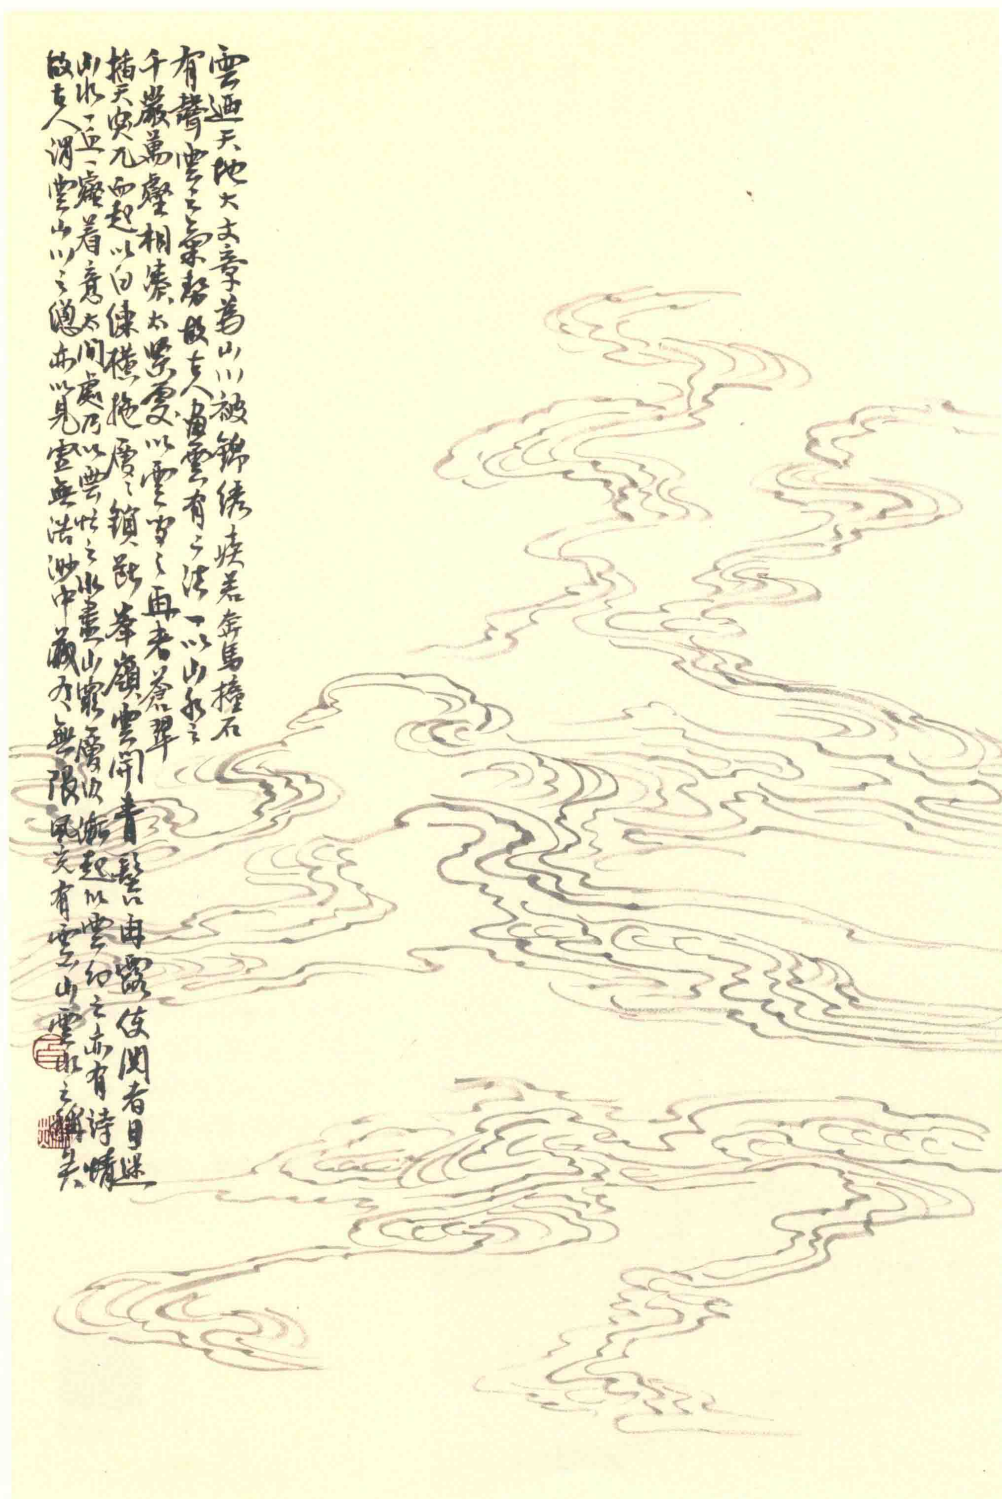 雲迺天地大文章為山川被錦綉疾若奔馬撞石
有聲雲之氣勢故古人畫雲有之法一以山水之
千巖萬壑相湊太緊處以雲間之再者蒼翠
插天突兀而起以白練橫拖層々鎖斷峯嶺雲開青髻再露使閱者目迷
山水一丘一壑着意太間處乃以雲忙之水盡山窮層次漸起以雲幻之亦有詩情
故古人謂雲山川之總亦以見虛無浩渺中藏有無限風光有雲山雲水之稱矣